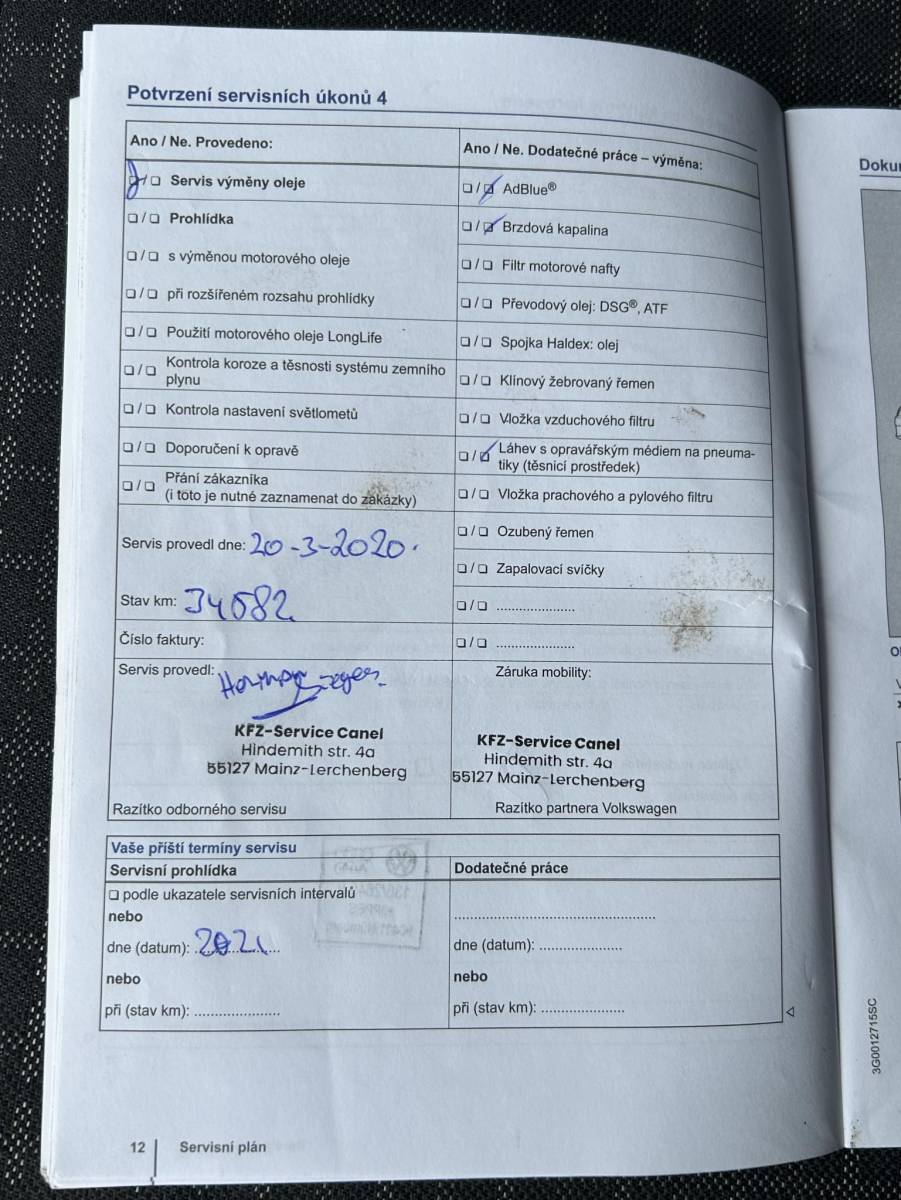 Potvrzení servisních úkonů 4
Ano / Ne. Provedeno:
❏ / ❏ Servis výměny oleje
❏ / ❏ Prohlídka
❏ / ❏ s výměnou motorového oleje
❏ / ❏ při rozšířeném rozsahu prohlídky
❏ / ❏ Použití motorového oleje LongLife
❏ / ❏ Kontrola koroze a těsnosti systému zemního
plynu
❏ / ❏ Kontrola nastavení světlometů
❏ / ❏ Doporučení k opravě
❏ / ❏ Přání zákazníka
(i toto je nutné zaznamenat do zakázky)
Servis provedl dne: 20-3-2020.
Stav km: 34682
Číslo faktury:
Servis provedl:
KFZ-Service Canel
Hindemith str. 4a
55127 Mainz-Lerchenberg
Razítko odborného servisu
Ano / Ne. Dodatečné práce – výměna:
❏ / ❏ AdBlue®
❏ / ❏ Brzdová kapalina
❏ / ❏ Filtr motorové nafty
❏ / ❏ Převodový olej: DSG®, ATF
❏ / ❏ Spojka Haldex: olej
❏ / ❏ Klínový žebrovaný řemen
❏ / ❏ Vložka vzduchového filtru
❏ / ❏ Láhev s opravářským médiem na pneuma-
tiky (těsnicí prostředek)
❏ / ❏ Vložka prachového a pylového filtru
❏ / ❏ Ozubený řemen
❏ / ❏ Zapalovací svíčky
❏ / ❏ ......................
❏ / ❏ ......................
Záruka mobility:
KFZ-Service Canel
Hindemith str. 4a
55127 Mainz-Lerchenberg
Razítko partnera Volkswagen
Vaše příští termíny servisu
Servisní prohlídka
❏ podle ukazatele servisních intervalů
nebo
dne (datum): 2021
nebo
při (stav km): ......................
Dodatečné práce
......................................................
dne (datum): ......................
nebo
při (stav km): ......................
12 Servisní plán
Doku
3G0012715SC